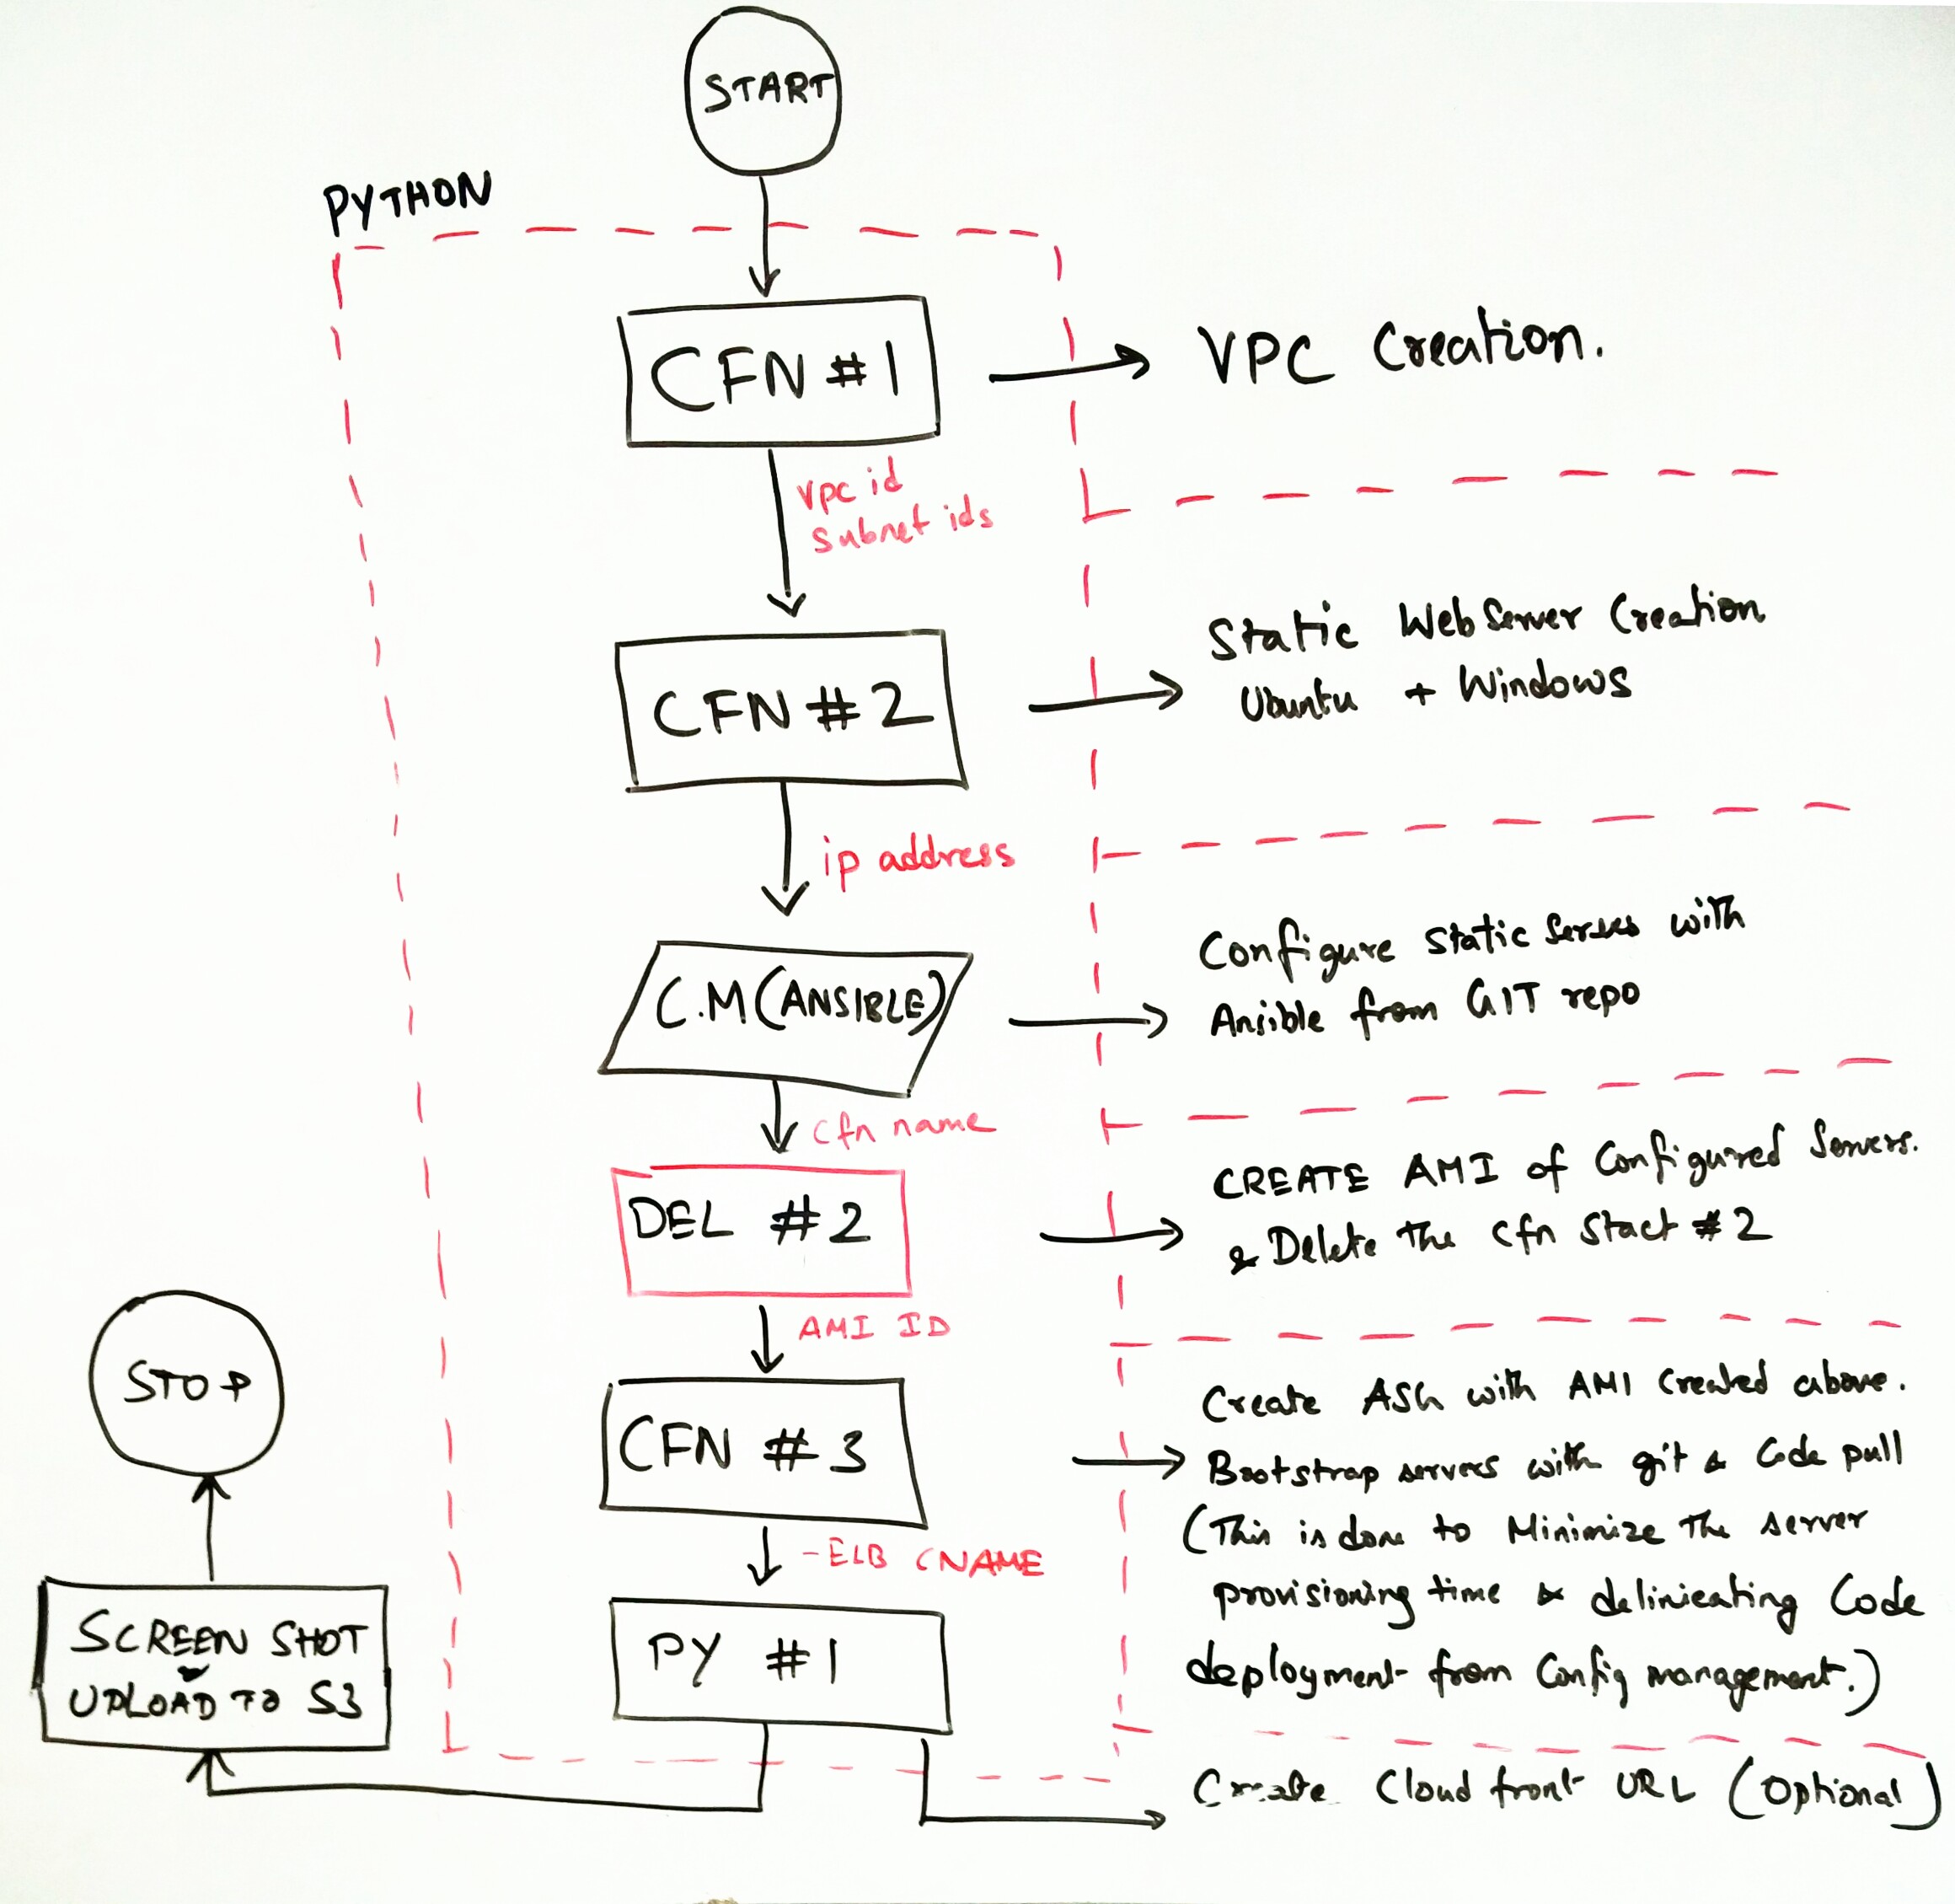 START
PYTHON
CFN #1
VPC Creation.
vpc id
subnet ids
CFN #2
Static Web Server Creation
Ubuntu + Windows
ip address
C.M (ANSIBLE)
Configure static Serves with
Ansible from GIT repo
cfn name
DEL #2
CREATE AMI of Configured Servers.
& Delete The cfn Stact #2
AMI ID
CFN #3
Create ASG with AMI Created above.
Bootstrap servers with git & Code pull
(This is done to Minimize The server
provisioning time & delinieating Code
deployment from Config management.)
- ELB CNAME
PY #1
Create Cloud front URL (Optional)
SCREEN SHOT
UPLOAD TO S3
STOP